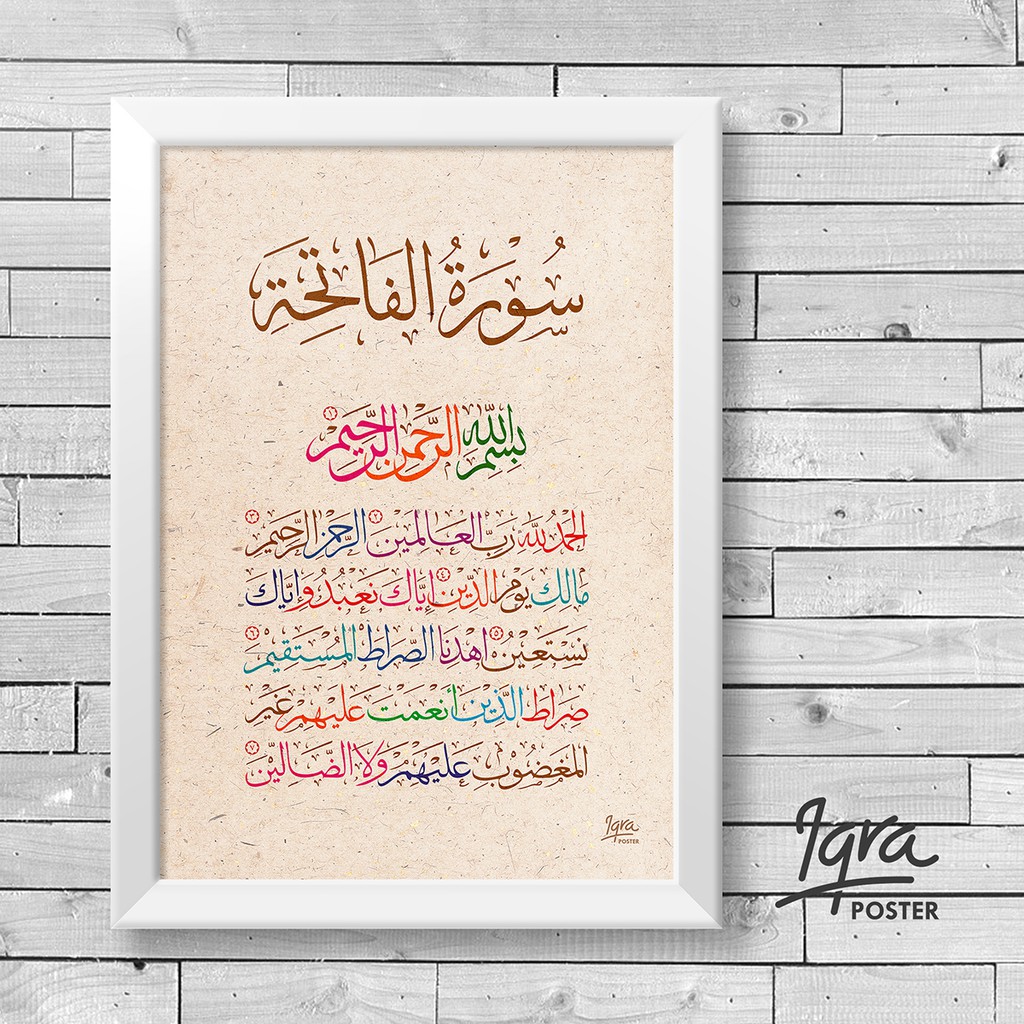 سُورَةُ الفَاتِحَةِ
بِسْمِ اللَّهِ الرَّحْمَنِ الرَّحِيمِ ١
الحَمْدُ لِلَّهِ رَبِّ العَالَمِينَ ٢ الرَّحْمَنِ الرَّحِيمِ ٣
مَالِكِ يَوْمِ الدِّينِ ٤ إِيَّاكَ نَعْبُدُ وَإِيَّاكَ
نَسْتَعِينُ ٥ اهْدِنَا الصِّرَاطَ المُسْتَقِيمَ ٦
صِرَاطَ الَّذِينَ أَنْعَمْتَ عَلَيْهِمْ غَيْرِ
المَغْضُوبِ عَلَيْهِمْ وَلَا الضَّالِّينَ ٧
Iqra
POSTER
Iqra
POSTER